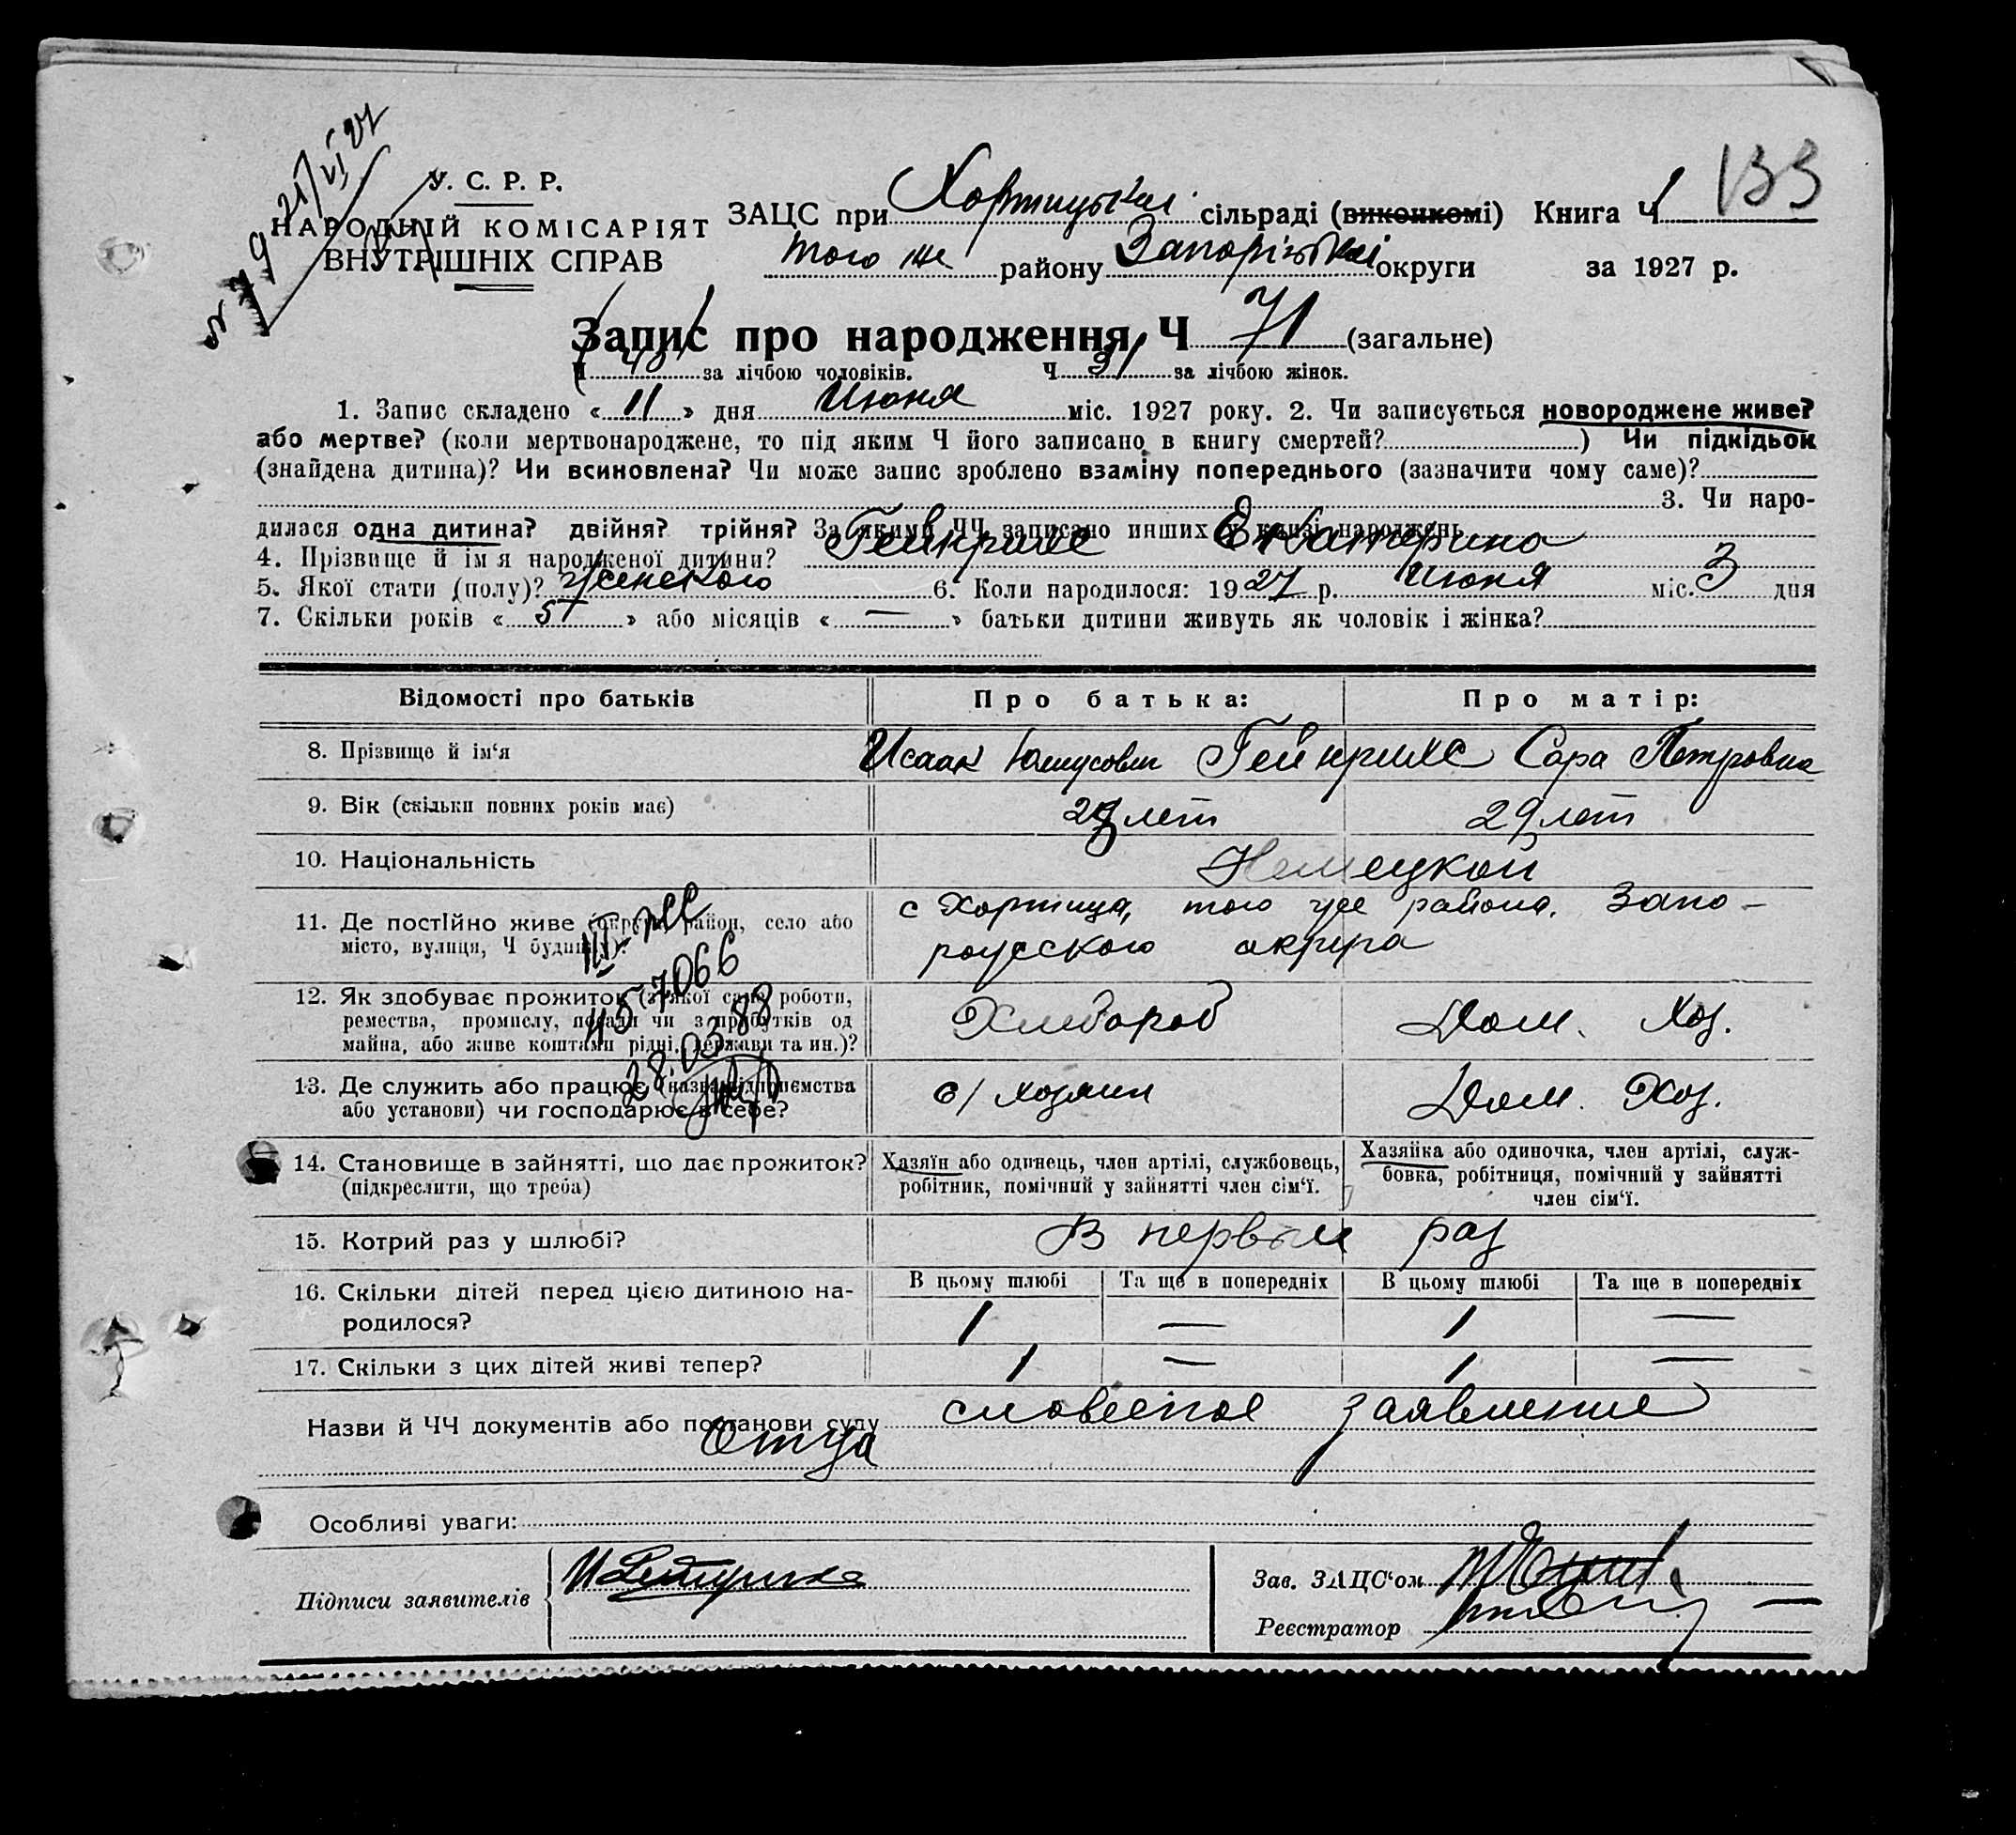 133
21/VI 27
У. С. Р. Р.
НАРОДНІЙ КОМІСАРІЯТ
ВНУТРІШНІХ СПРАВ
ЗАЦС при Хортицькій сільраді (виконкомі) Книга Ч 1
того же району Запорізькій округи за 1927 р.
Запис про народження Ч 71 (загальне)
Ч 40 за лічбою чоловіків. Ч 31 за лічбою жінок.
1. Запис складено « 11 » дня Июня міс. 1927 року. 2. Чи записується новороджене живе?
або мертве? (коли мертвонароджене, то під яким Ч його записано в книгу смертей? ) Чи підкідьок
(знайдена дитина)? Чи всиновлена? Чи може запис зроблено взаміну попереднього (зазначити чому саме)?
3. Чи наро-
дилася одна дитина? двійня? трійня? За якими ЧЧ записано инших у книзі народжень
4. Прізвище й ім'я народженої дитини? Гейнрихс Екатерина
5. Якої стати (полу)? женского 6. Коли народилося: 1927 р. Июня міс. 3 дня
7. Скільки років « 5 » або місяців « — » батьки дитини живуть як чоловік і жінка?
Відомості про батьків Про батька: Про матір:
8. Прізвище й ім'я Исаак Гейнрихс Сара Петровна
9. Вік (скільки повних років має) лет 29 лет
10. Національність Немецкой
11. Де постійно живе (округа, район, село або с Хортица, того же района, Запо-
місто, вулиця, Ч будинку)? рожского округа
12. Як здобуває прожиток (з якої саме роботи, Хлебороб Дом. Хоз.
ремества, промислу, посади чи з прибутків од
майна, або живе коштами рідні, держави та ин.)?
457066
28.03.88
13. Де служить або працює (назва підприємства с/ хозяин Дом. Хоз.
або установи) чи господарює в себе?
14. Становище в зайнятті, що дає прожиток? Хазяїн або одинець, член артілі, службовець, Хазяйка або одиночка, член артілі, служ-
(підкреслити, що треба) робітник, помічний у зайнятті член сім'ї. бовка, робітниця, помічний у зайнятті
член сім'ї.
15. Котрий раз у шлюбі? В первый раз
16. Скільки дітей перед цією дитиною на- В цьому шлюбі Та ще в попередніх В цьому шлюбі Та ще в попередніх
родилося? 1 — 1 —
17. Скільки з цих дітей живі тепер? 1 — 1 —
Назви й ЧЧ документів або постанови суду словесное заявление
Отца
Особливі уваги:
Підписи заявителів
Зав. ЗАЦС'ом
Реєстратор